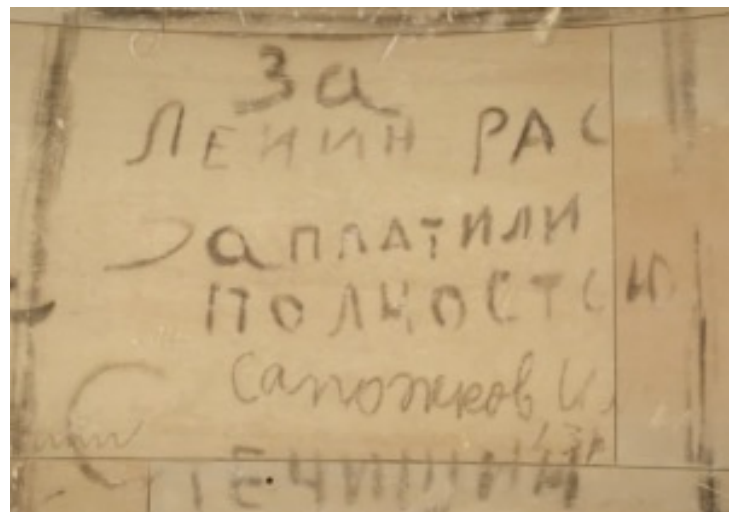 За
ЛЕНИН РАС
заплатили
ПОЛНОСТЬЮ
Сапожков И.
ТЕЧИЩИН